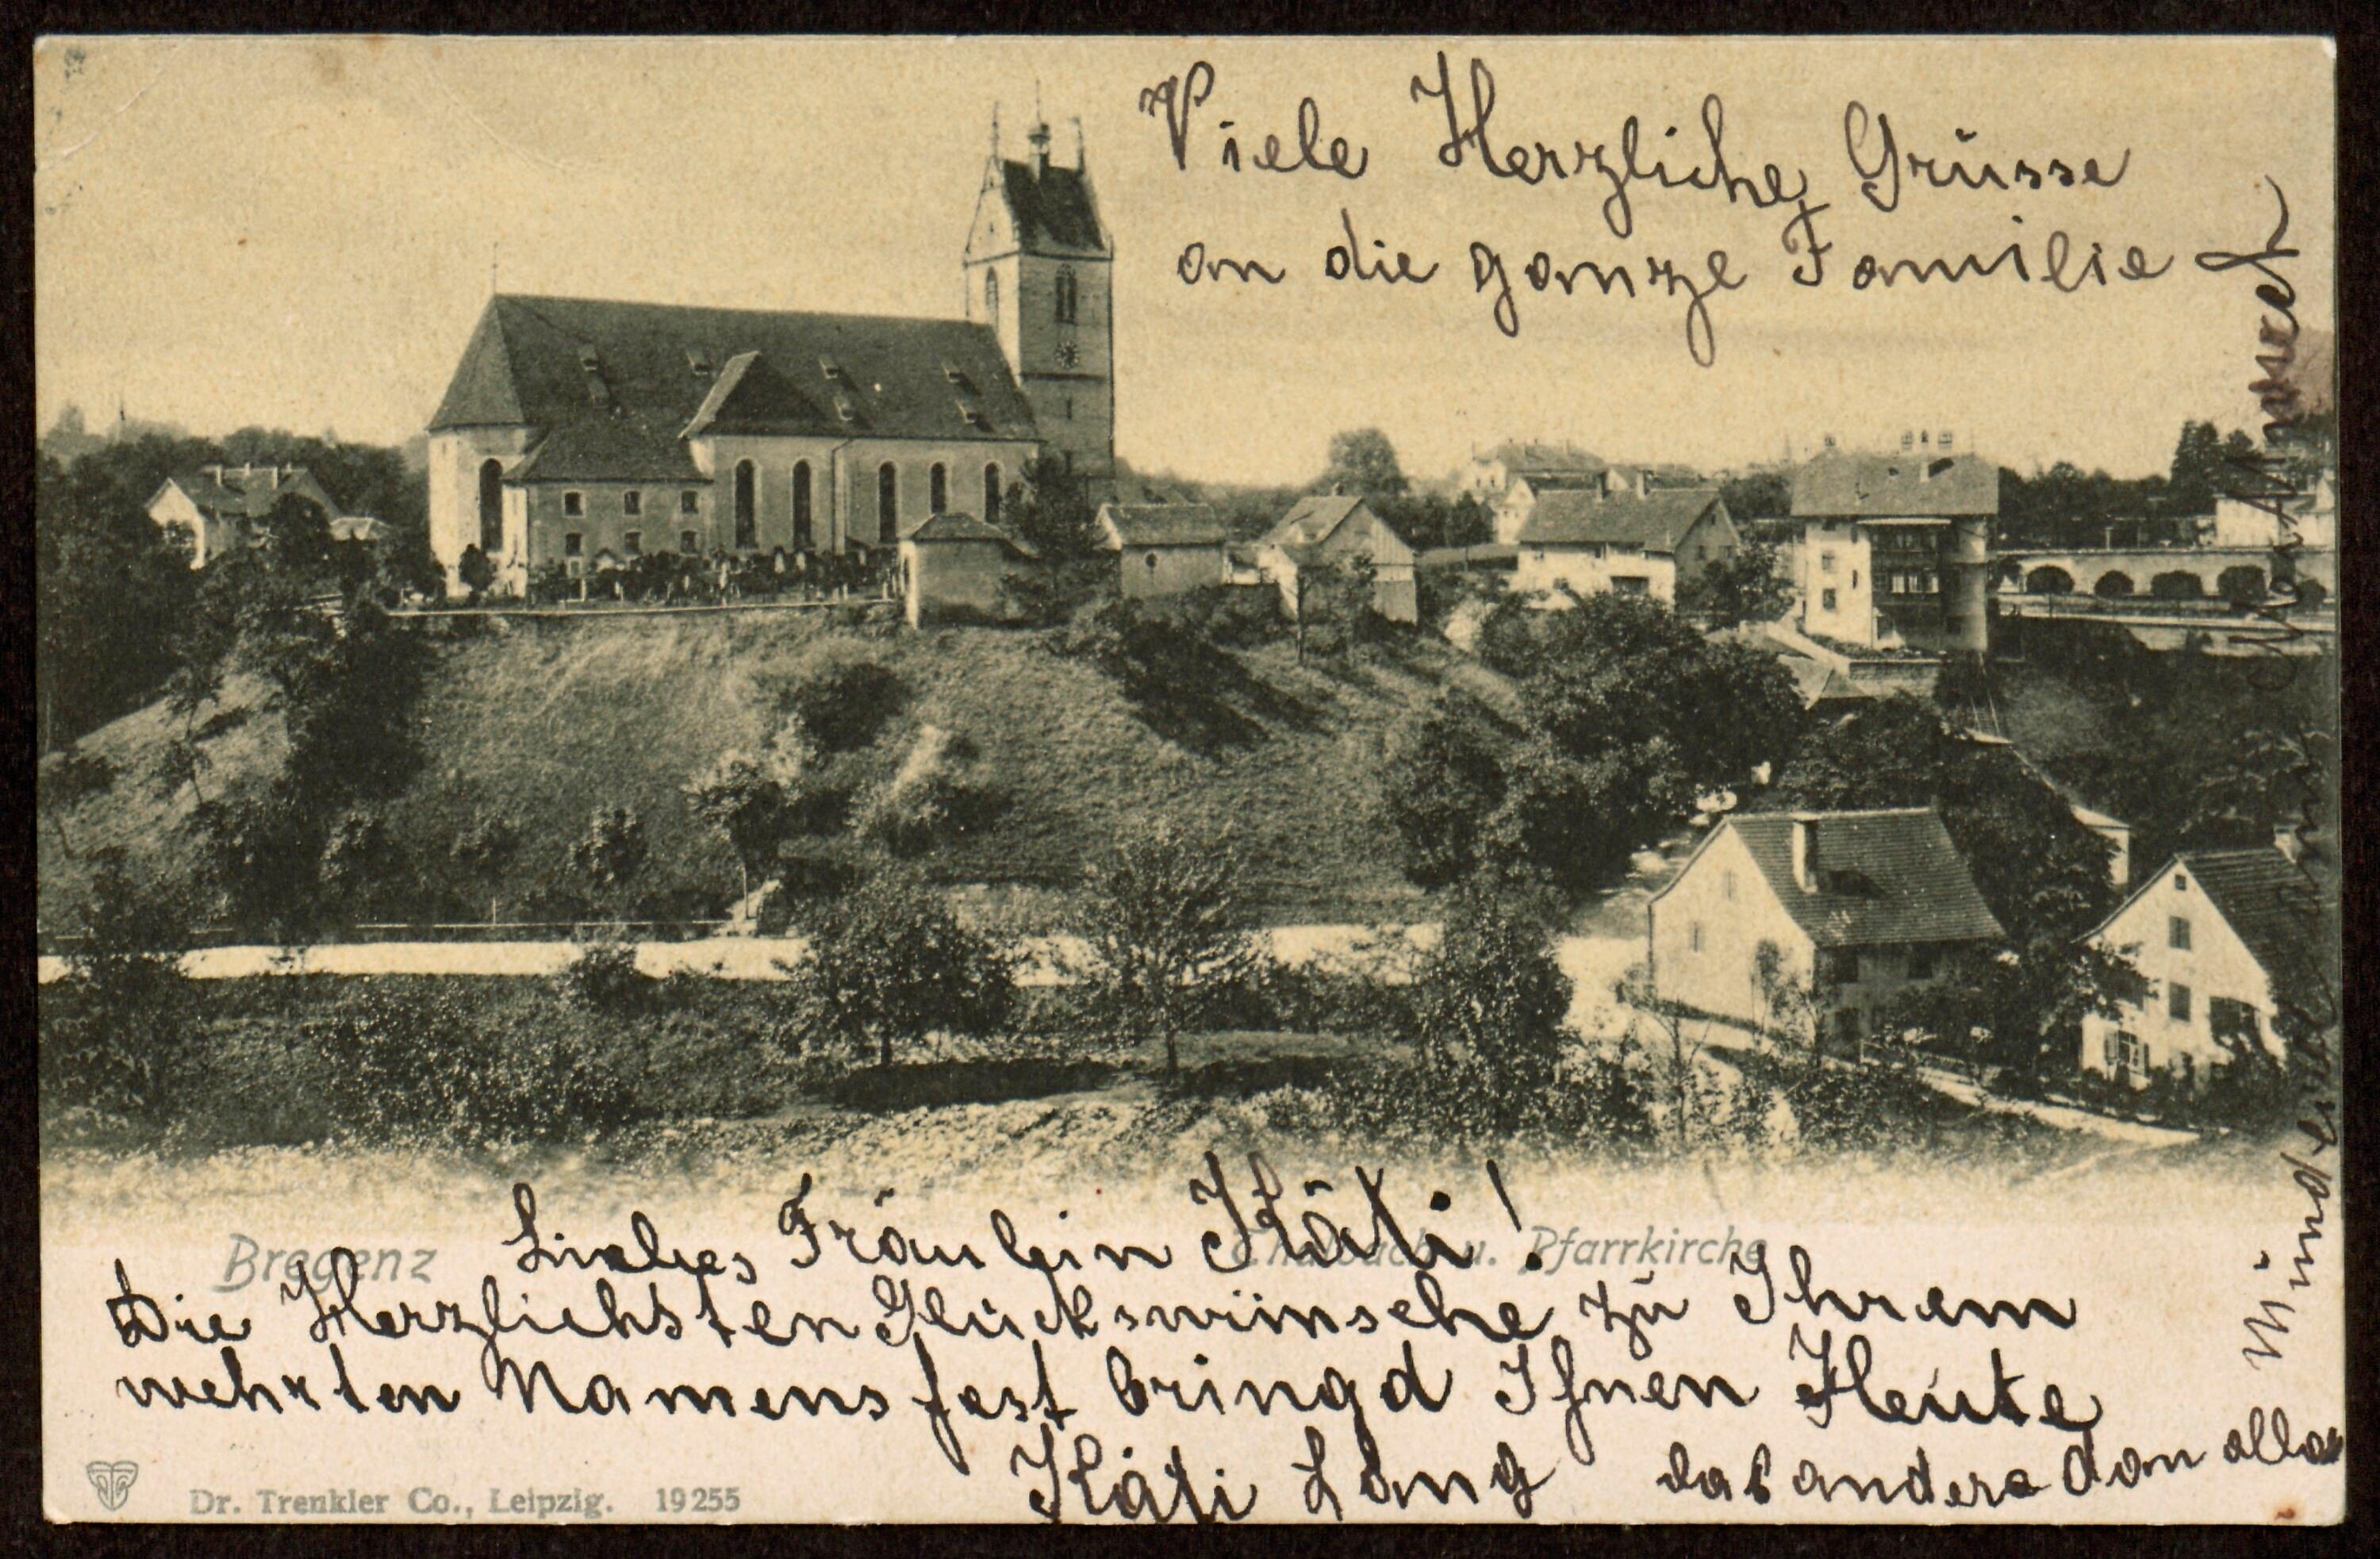 Viele Herzliche Grüsse
an die ganze Familie
Bregenz
Thalbach u. Pfarrkirche
Liebes Fräulein Käti!
Die Herzlichsten Glückswünsche zu Ihrem
wehrten Namensfest bringd Ihnen Heute
Käti Lang
das andere dan alles
Mündlich am
Dr. Trenkler Co., Leipzig. 19255